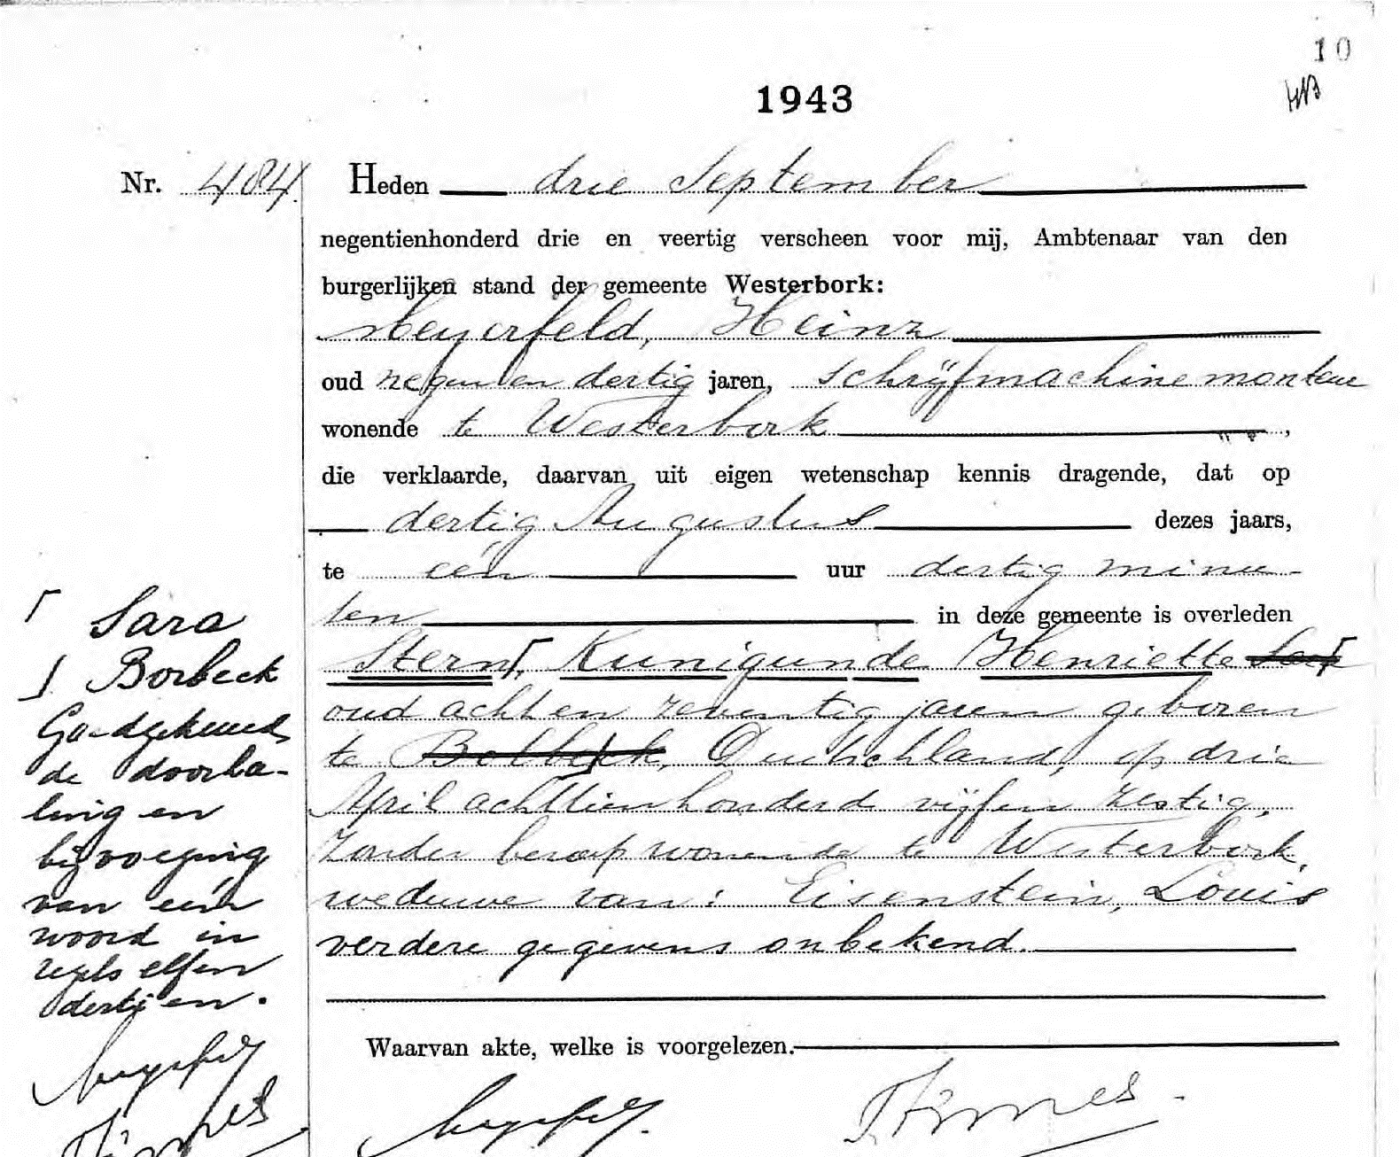 10
HB
1943
Nr. 484. Heden drie September
negentienhonderd drie en veertig verscheen voor mij, Ambtenaar van den
burgerlijken stand der gemeente Westerbork:
Meyerfeld, Heinz
oud negen en dertig jaren, schrijfmachinemonteur
wonende te Westerbork ,
die verklaarde, daarvan uit eigen wetenschap kennis dragende, dat op
dertig Augustus dezes jaars,
te één uur dertig minu-
ten in deze gemeente is overleden
Stern, Kunigunde Henriette
oud acht en zeventig jaren geboren
te Bolbeck, Duitschland, op drie
April achttienhonderd vijf en zestig,
zonder beroep wonende te Westerbork,
weduwe van: Eisenstein, Louis
verdere gegevens onbekend.
Waarvan akte, welke is voorgelezen.
Sara
Borbeck
Goedgekeurd
de doorha-
ling en
bijvoeging
van één
woord in
regels elf en
dertien.